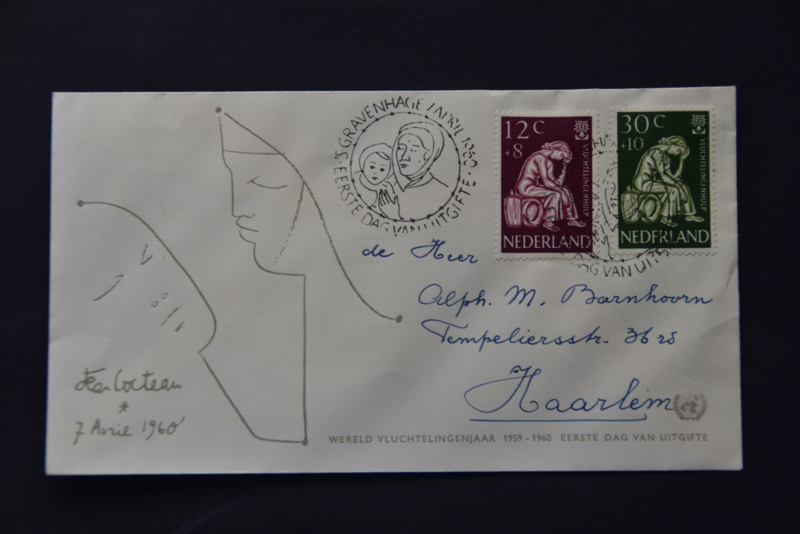 'S GRAVENHAGE 7 APRIL 1960
· EERSTE DAG VAN UITGIFTE ·
12 C
+8
VLUCHTELINGENHULP
NEDERLAND
30 C
+10
VLUCHTELINGENHULP
NEDERLAND
DAG VAN UITG
de Heer
Alph. M. Barnhoorn
Tempeliersstr. 36 rd
Haarlem
Jean Cocteau
*
7 Avril 1960
WERELD VLUCHTELINGENJAAR 1959 - 1960 EERSTE DAG VAN UITGIFTE